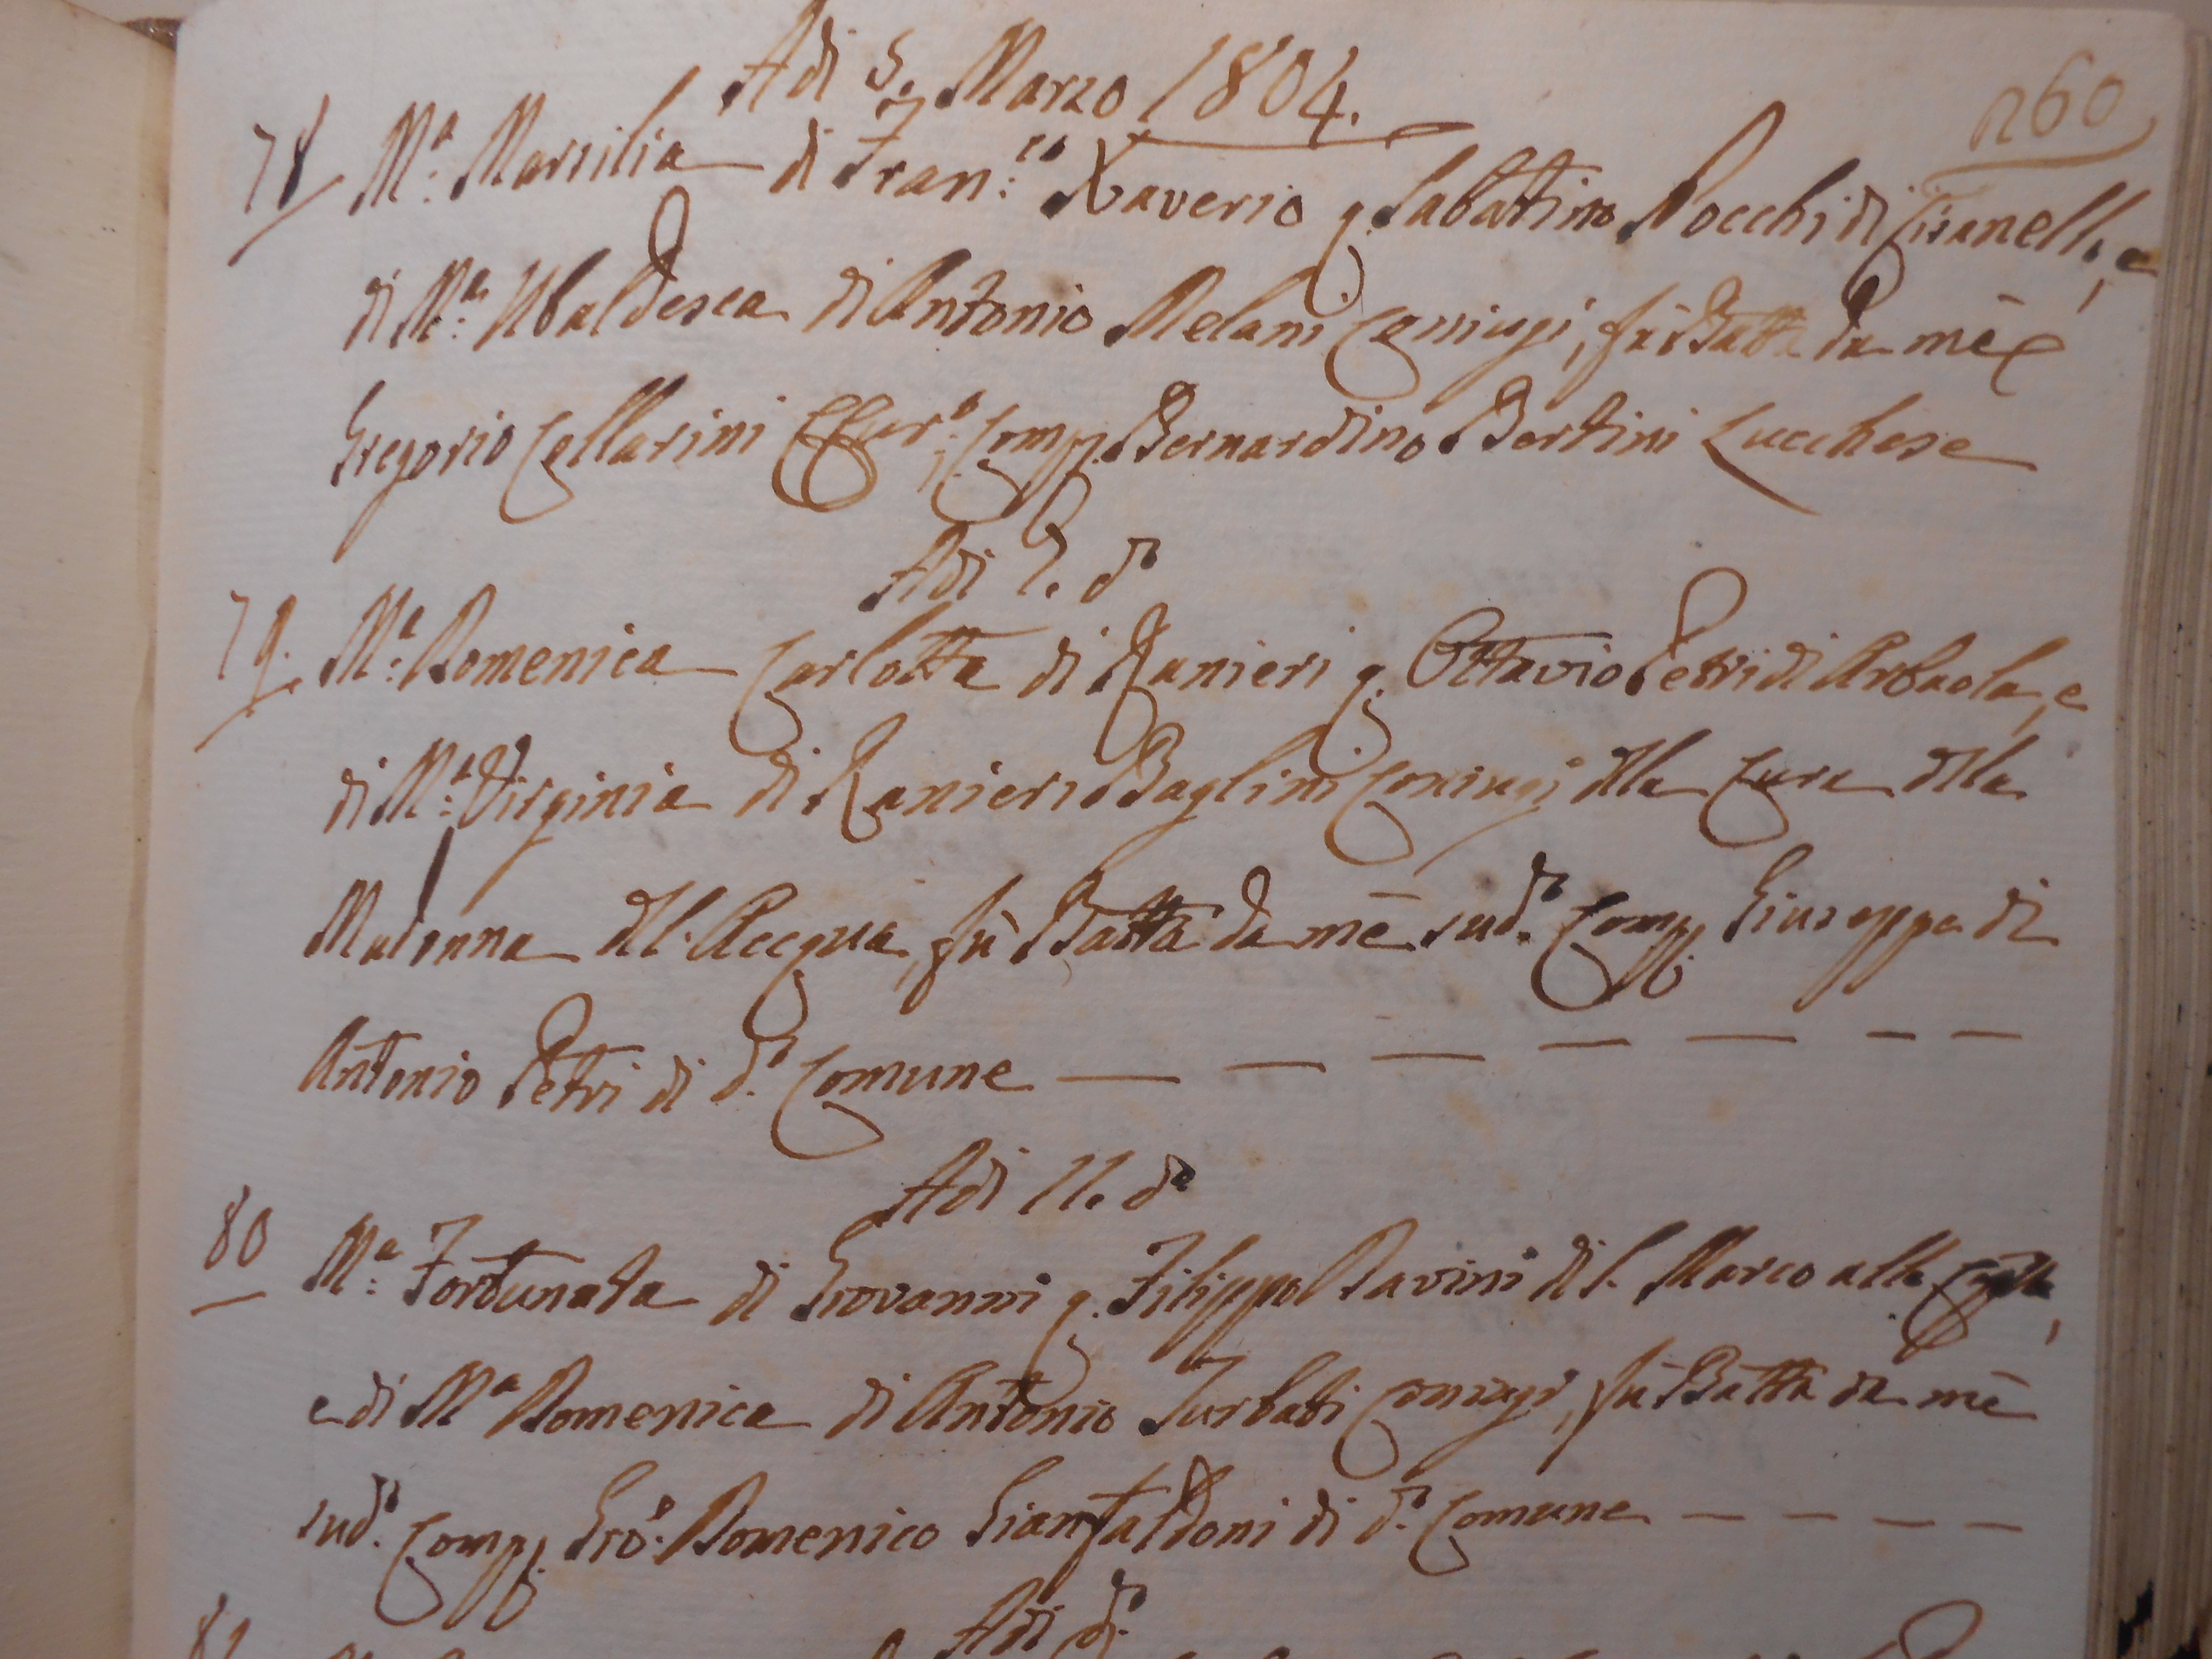 Adi 5. Marzo 1804.
260
78 M.ª Marsilia di Fran.co Xaverio q. Sabatino Nocchi di Cisanello, e
di M.ª Ubaldesca di Antonio Melani Coniugi, fù Batt.ª da mè
Gregorio Collarini Cur.º Comp. Bernardino Bertini Lucchese
Adi 7. dº
79. M.ª Domenica Carlotta di Ranieri q. Ottavio Petri di Arbaola, e
di M.ª Virginia di Ranieri Baglini Coniugi dlla Cura dlla
Madonna dll. Acqua, fù Batta da mè sudº. Comp. Giuseppe di
Antonio Petri di dº. Comune — — — — — — —
Adi 11. dº
80 M.ª Fortunata di Giovanni q. Filippo Davini di S. Marco alle
e di Mª Domenica di Antonio Turbati Coniugi, fù Batta da mè
sudº. Comp. Gio. Domenico Gianfaldoni di dº. Comune — — — —
Adi dº.
81